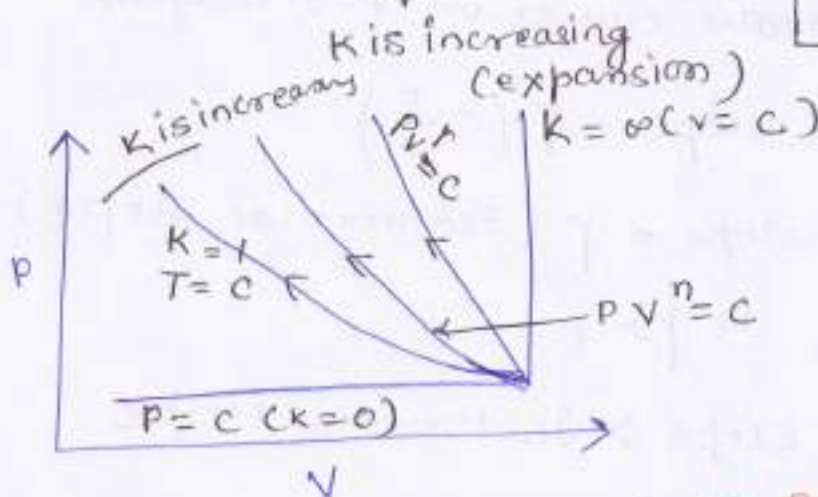 K is increasing
(expansion)
K is increases
K = ∞ (v = c)
Pv^r = C
K = 1
T = C
P
P V^n = C
P = C (K = 0)
V